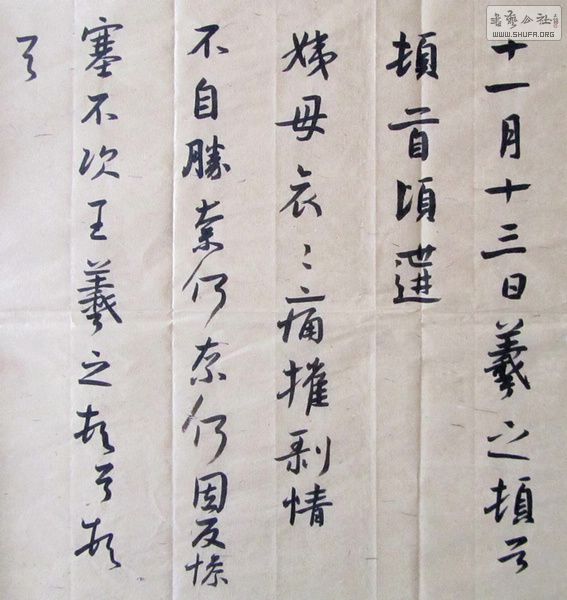 十一月十三日羲之頓首
頓首頃遘
姨母哀〻痛摧剝情
不自勝奈何奈何因反慘
塞不次王羲之頓首頓
首
书艺公社
WWW.SHUFA.ORG